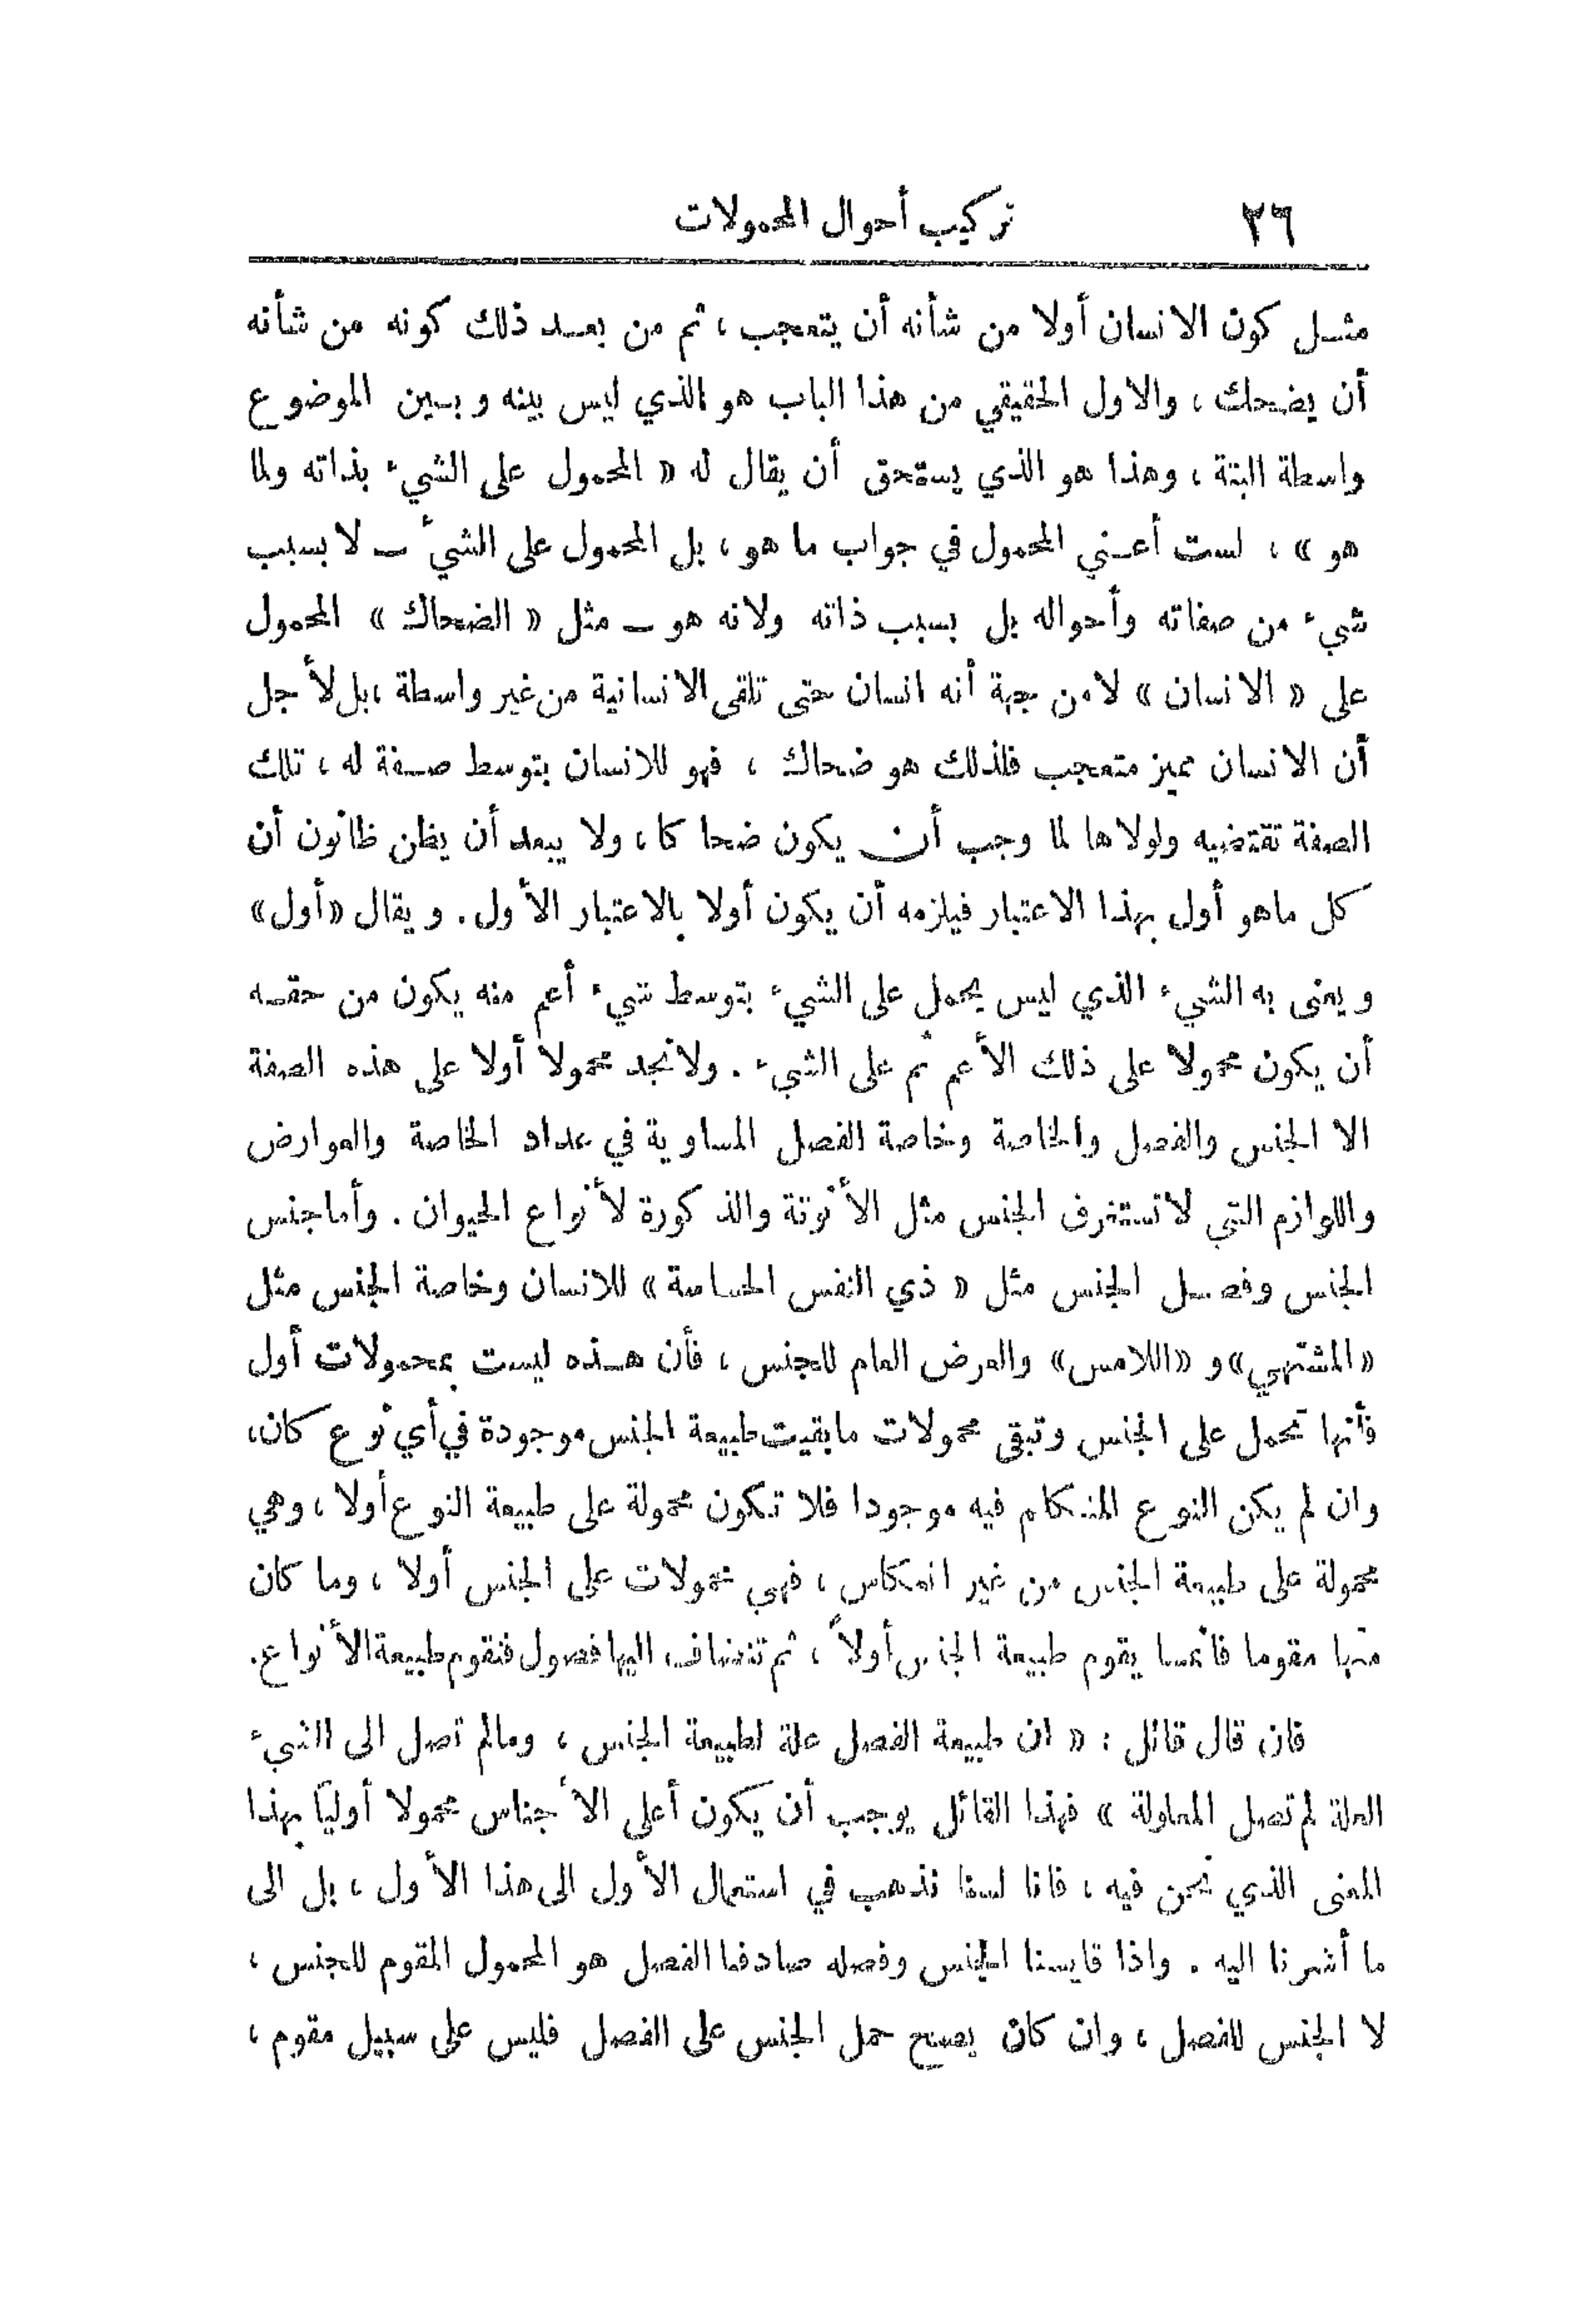 ٢٦ تركيب أحوال المحمولات
مثل كون الانسان أولا من شأنه أن يتعجب ، ثم من بعد ذلك كونه من شأنه
أن يضحك ، والاول الحقيقي من هذا الباب هو الذي ليس بينه وبين الموضوع
واسطة البتة ، وهذا هو الذي يستحق أن يقال له « المحمول على الشيء بذاته ولما
هو » ، لست أعني المحمول في جواب ما هو ، بل المحمول على الشيء ــ لا بسبب
شيء من صفاته وأحواله بل بسبب ذاته ولانه هو ــ مثل « الضحاك » المحمول
على « الانسان » لا من جهة أنه انسان حتى تلقى الانسانية من غير واسطة ، بل لأجل
أن الانسان مميز متعجب فلذلك هو ضحاك ، فهو للانسان بتوسط صفة له ، تلك
الصفة تقتضيه ولولاها لما وجب أن يكون ضحاكا ، ولا يبعد أن يظن ظانون أن
كل ماهو أول بهذا الاعتبار فيلزمه أن يكون أولا بالاعتبار الأول . ويقال «أول»
ويعنى به الشيء الذي ليس يحمل على الشيء بتوسط شيء أعم منه يكون من حقه
أن يكون محمولا على ذلك الأعم ثم على الشيء . ولا نجد محمولا أولا على هذه الصفة
الا الجنس والفصل والخاصة وخاصة الفصل المساوية في عداد الخاصة والعوارض
واللوازم التي لا تستغرق الجنس مثل الأنوثة والذكورة لأنواع الحيوان . وأما جنس
الجنس وفصل الجنس مثل « ذي النفس الحساسة » للانسان وخاصة الجنس مثل
«المشتهي» و «اللامس» والعرض العام للجنس ، فأن هذه ليست بمحمولات أول
فأنها تحمل على الجنس وتبقى محمولات ما بقيت طبيعة الجنس موجودة في أي نوع كان،
وان لم يكن النوع المتكلم فيه موجودا فلا تكون محمولة على طبيعة النوع أولا ، وهي
محمولة على طبيعة الجنس من غير انعكاس ، فهي محمولات على الجنس أولا ، وما كان
منها مقوما فأنما يقوم طبيعة الجنس أولاً ، ثم تنضاف اليها فصول فتقوم طبيعة الأنواع.
فان قال قائل : « ان طبيعة الفصل علة لطبيعة الجنس ، ومالم تصل الى الشيء
العلة لم تصل المعلولة » فهذا القائل يوجب أن يكون أعلى الأجناس محمولا أولياً بهذا
المعنى الذي نحن فيه ، فانا لسنا نذهب في استعمال الأول الى هذا الأول ، بل الى
ما أشرنا اليه . واذا قايسنا الجنس وفصله صادفنا الفصل هو المحمول المقوم للجنس ،
لا الجنس للفصل ، وان كان يصح حمل الجنس على الفصل فليس على سبيل مقوم ،